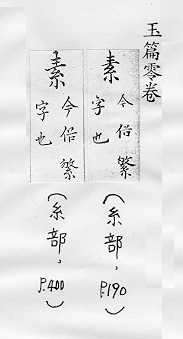 玉篇零卷
素
今俗繁
字也
(糸部,
P.190)
素
今俗繁
字也
(糸部,
P.400)